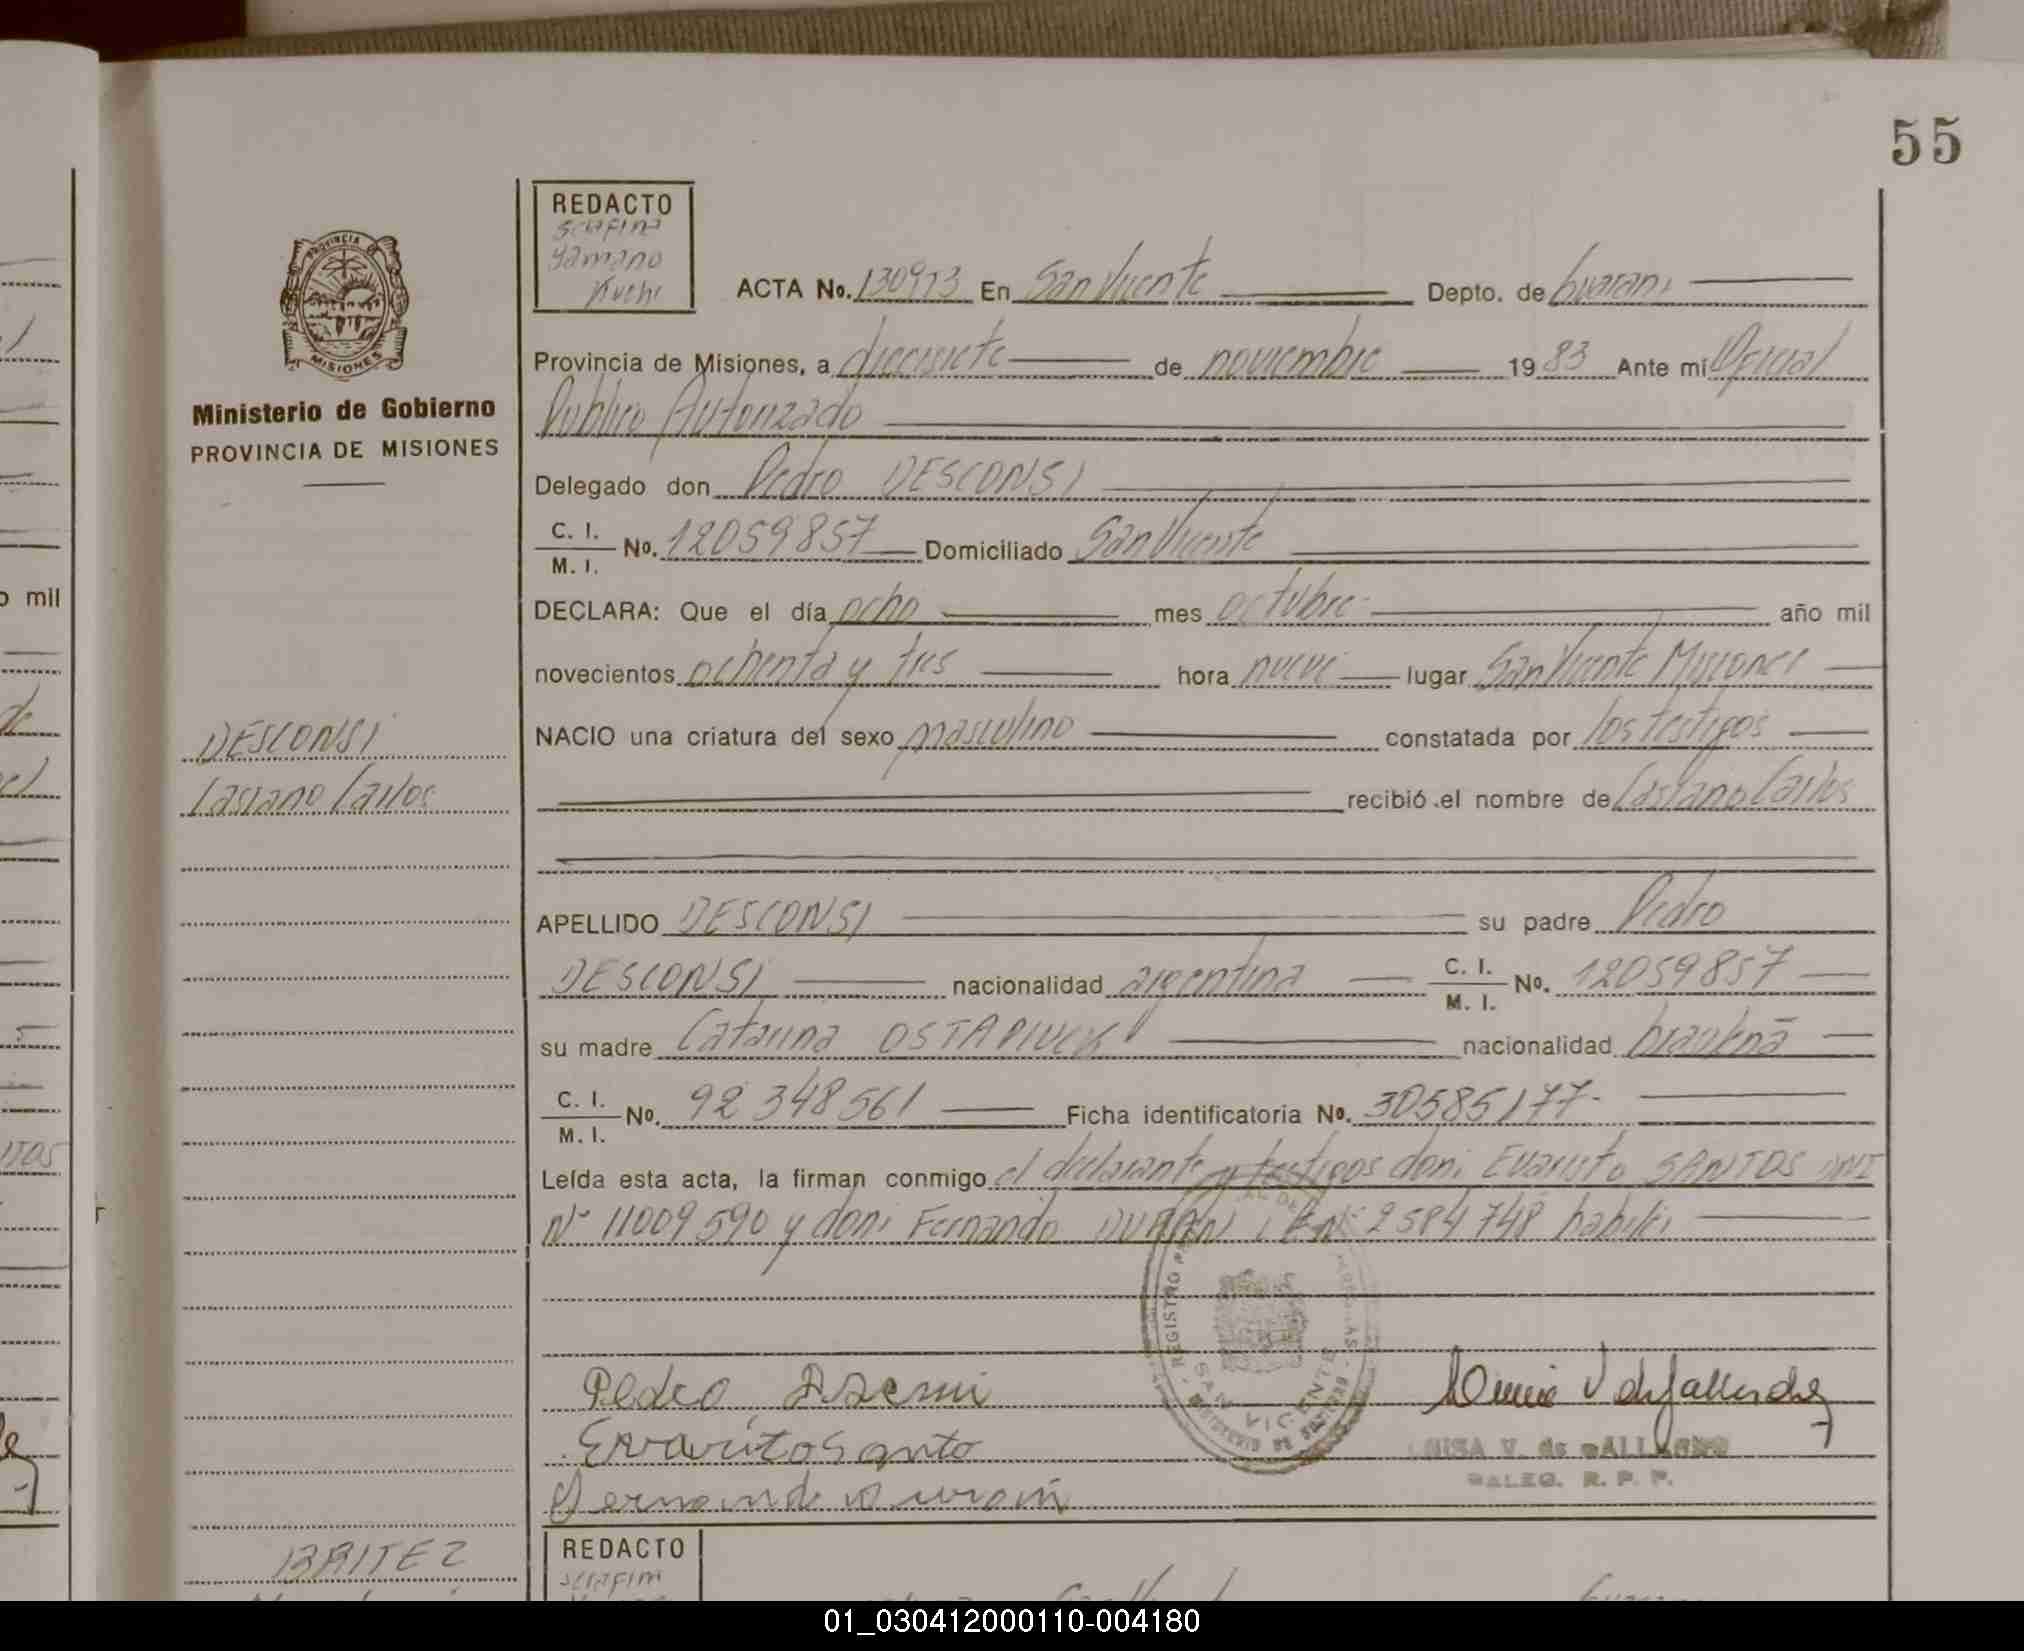 55
REDACTO
serafina
Yamano
Kuchi
PROVINCIA
MISIONES
Ministerio de Gobierno
PROVINCIA DE MISIONES
ACTA No. 130913 En San Vicente Depto. de Guarani
Provincia de Misiones, a diecisiete de noviembre 1983 Ante mi Oficial
Publico Autorizado
Delegado don Pedro DESCONSI
C. I.
M. I. No. 12059857 Domiciliado San Vicente
DECLARA: Que el día ocho mes octubre año mil
novecientos ochenta y tres hora nueve lugar San Vicente Misiones
NACIO una criatura del sexo masculino constatada por los testigos
DESCONSI
Casiano Carlos
recibió el nombre de Casiano Carlos
APELLIDO DESCONSI su padre Pedro
DESCONSI nacionalidad argentina C. I.
M. I. No. 12059857
su madre Catarina OSTAPIUCK nacionalidad brasileña
C. I.
M. I. No. 92348561 Ficha identificatoria No. 30585177-
Leída esta acta, la firman conmigo el declarante y testigos don: Evaristo SANTOS DNI
Nº 11009590 y don: Fernando DURAN L E Nº 2584748 habiles
REGISTRO
SAN VICENTE
Pedro
Evaristo Santo
LUISA V. de GALLARDO
DALEG. R. P. P.
BRITEZ
REDACTO
serafina
o mil
01_030412000110-004180